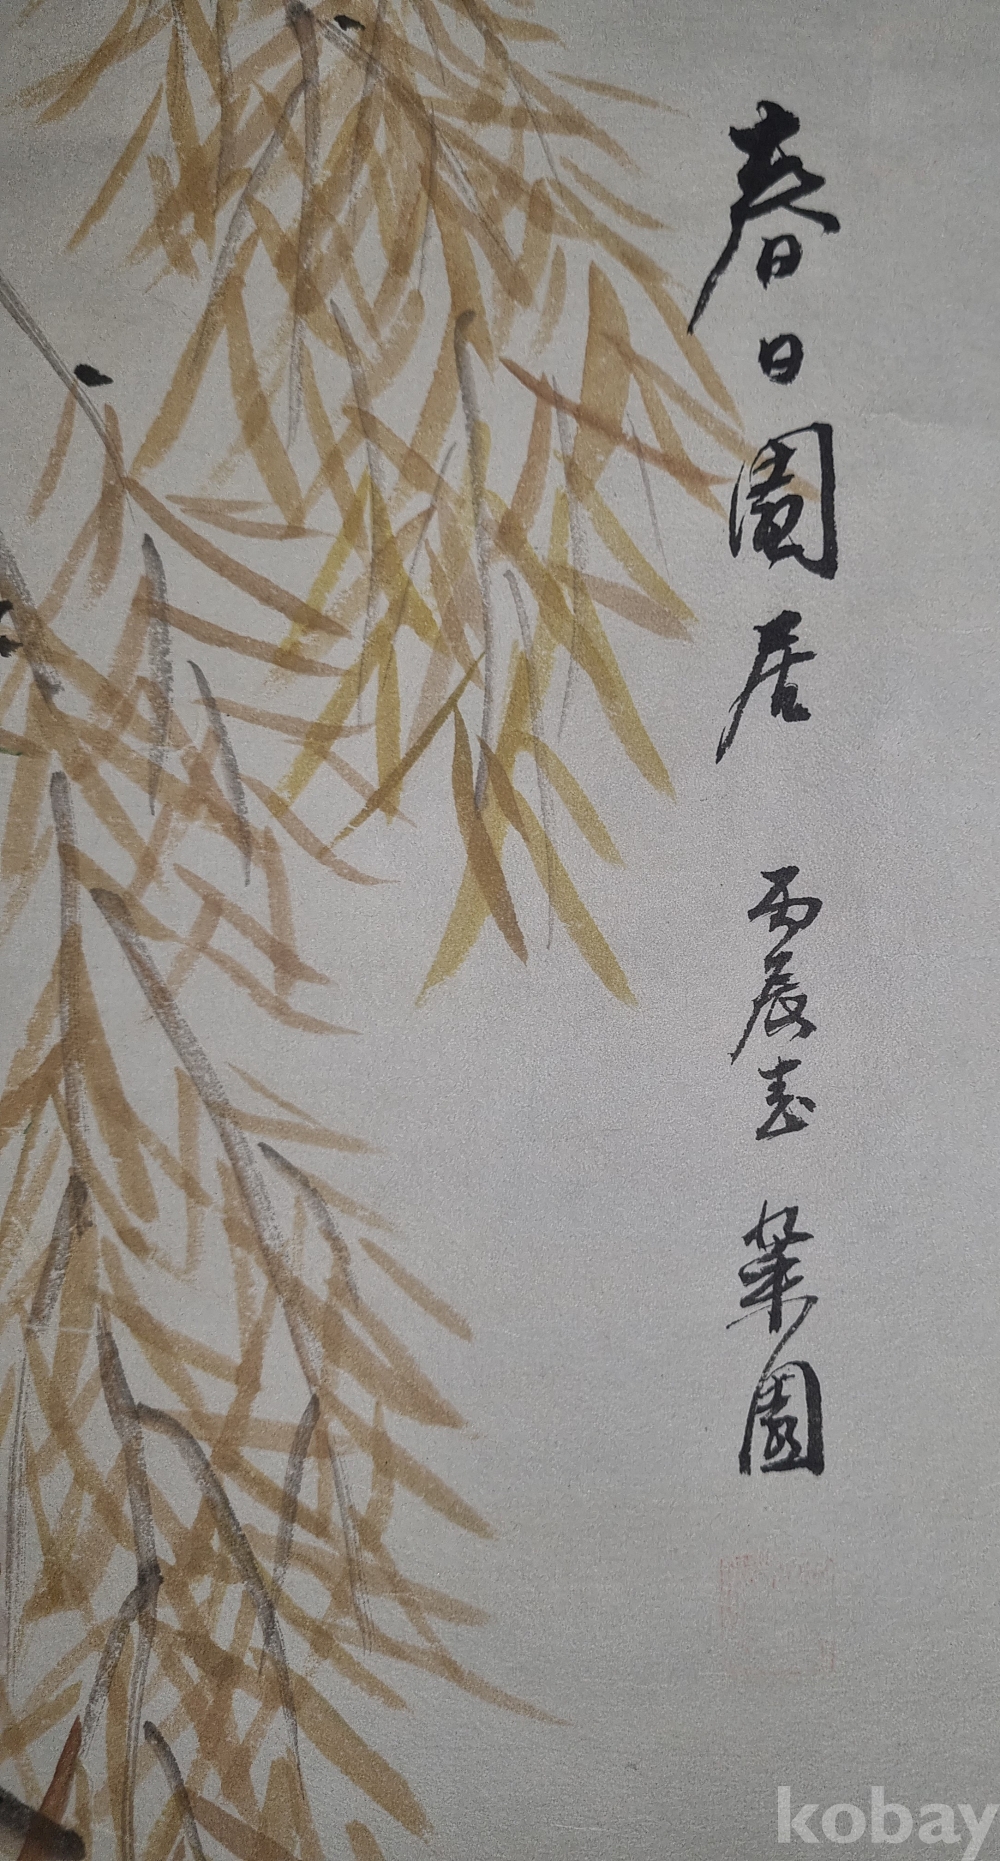 春日園居 丙辰春 葉園
kobay